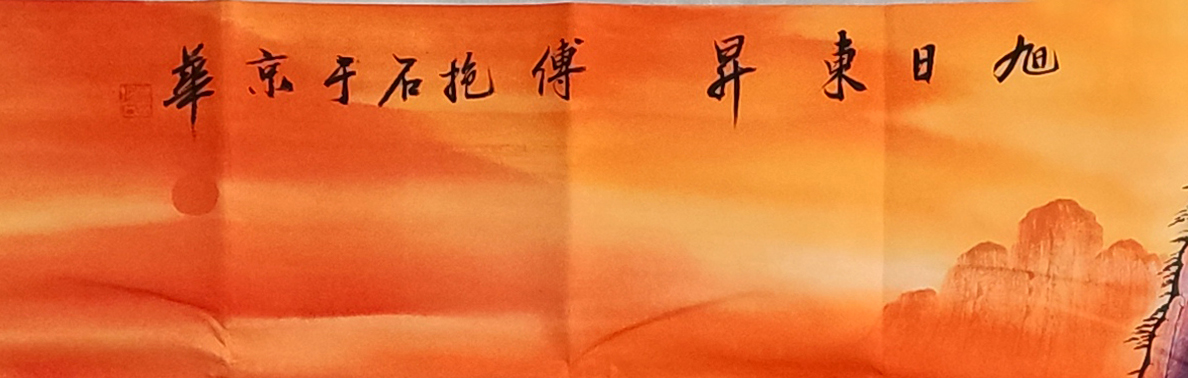 旭日東昇 傅抱石于京華